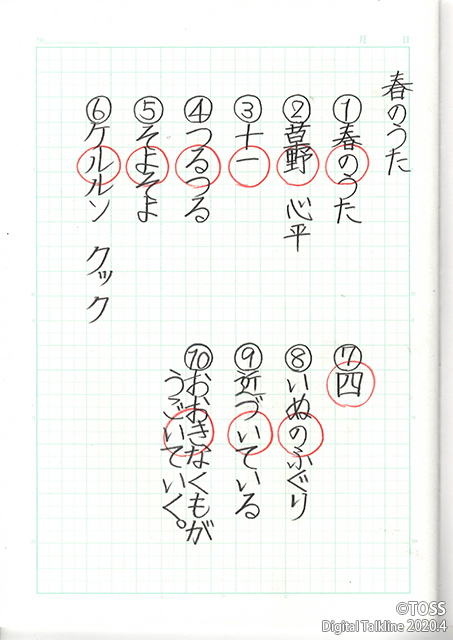 月　日
春のうた
①春のうた
②草野　心平
③十一
④つるつる
⑤そよそよ
⑥ケルルン　クック
⑦四
⑧いぬのふぐり
⑨近づいている
⑩おおきなくもが
うごいていく。
©TOSS
Digital Talkline 2020.4